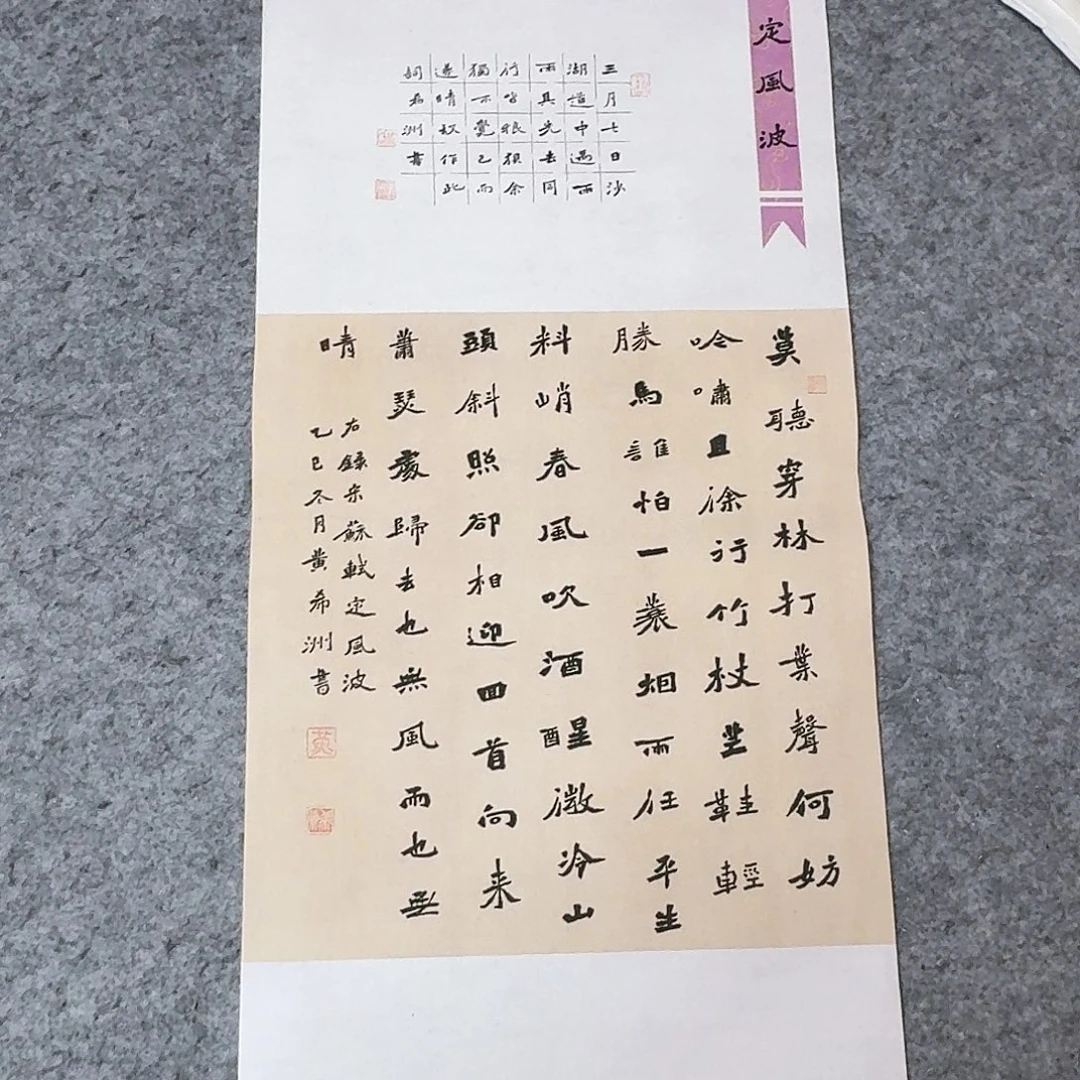 定風波
三月七日沙
湖道中遇雨
雨具先去同
行皆狼狽余
獨不覺已而
遂晴故作此
詞希洲書
莫聽穿林打葉聲何妨
吟嘯且徐行竹杖芒鞋輕
勝馬誰怕一蓑烟雨任平生
料峭春風吹酒醒微冷山
頭斜照卻相迎回首向来
蕭瑟處歸去也無風雨也無
晴
右錄宋蘇軾定風波
乙巳冬月黄希洲書